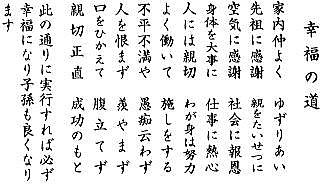 幸福の道
家内仲よく ゆずりあい
先祖に感謝 親をたいせつに
空気に感謝 社会に報恩
身体を大事に 仕事に熱心
人には親切 わが身は努力
よく働いて 施しをする
不平不満や 愚痴云わず
人を恨まず 羨やまず
口をひかえて 腹立てず
親切正直 成功のもと
此の通りに実行すれば必ず
幸福になり子孫も良くなり
ます